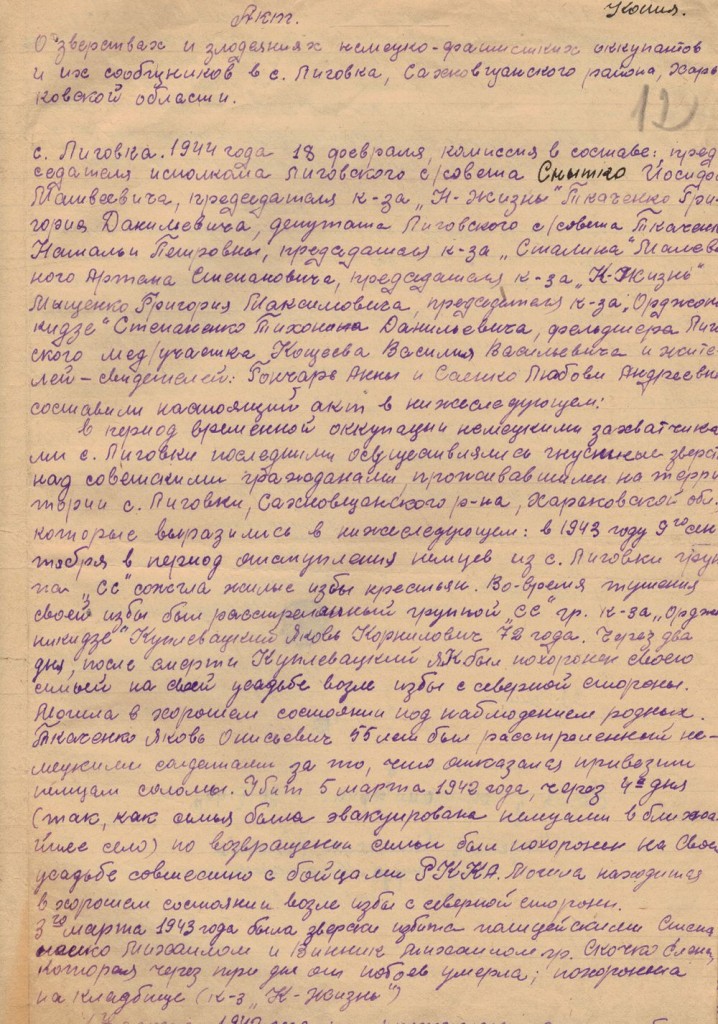 Акт.
Копия.
О зверствах и злодеяниях немецко-фашистских оккупантов
и их сообщников в с. Лиговка, Сахновщанского района, Харь
ковской области.
12
с. Лиговка. 1944 года 18 февраля, комиссия в составе: пред
седателя исполкома Лиговского с/совета Снытко Иосифа
Матвеевича, председателя к-за „Н-Жизнь" Ткаченко Гри
гория Данилевича, депутата Лиговского с/совета Ткаченк
Натальи Петровны, председателя к-за „Сталина" Малев
ного Артема Степановича, председателя к-за „К-Жизнь"
Мищенко Григория Максимовича, председателя к-за „Орджон
кидзе" Степаненко Данильевича, фельдшера Лиг
ского мед/участка Кощеева Василия Васильевича и жите
лей - свидетелей: Гончарь Анны и Саенко Любови Андреевн
составили настоящий акт в нижеследующем:
в период временной оккупации немецкими захватчика
ми с. Лиговки последними осуществлялись гнусные зверст
над советскими гражданами, проживавшими на терри
тории с. Лиговки, Сахновщанского р-на, Харьковской обл.
которые выразились в нижеследующем: в 1943 году 9го сен
тября в период отступления немцев из с. Лиговки груп
па „СС" сожгла жилые избы крестьян. Во-время тушения
своей избы был расстрелянный группой „СС" гр. к-за „Ордж
никидзе" Куплевацкий Яковь Корнилович 72 года. Через два
дня, после смерти Куплевацкий ЯК был похоронен своею
семьей на своей усадьбе возле избы с северной стороны.
Могила в хорошем состоянии под наблюдением родных.
Ткаченко Яковь Онисьевич 55 лет был расстреленный не-
мецкими солдатами за то, что отказался привозить
немцам соломы. Убит 5 марта 1942 года, через 4 дня
(так, как семья была эвакуирована немцами в ближа
йшее село) по возвращении семьи был похоронен на своей
усадьбе совместно с бойцами РККА. Могила находится
в хорошем состоянии возле избы с северной стороны.
3го марта 1943 года была зверски избита полицейскими Степа
ненко Михаилом и Винник Михаилом гр. Скочко Елена,
которая через три дня от побоев умерла; похоронена
на кладбище (к-з „К-Жизнь")